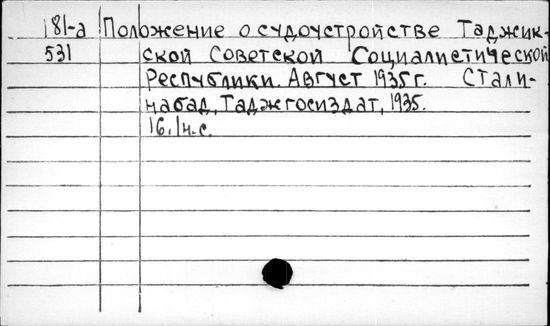 181-а Положение о судоустройстве Таджик-
531 ской Советской Социалистической
Республики. Август 1935 г. Стали-
набад, Таджгосиздат, 1935.
16, 1н.с.